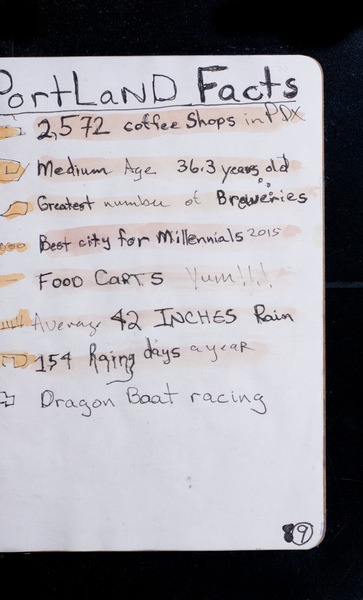 PortLAND Facts
2,572 coffee Shops in PDX
Medium Age 36.3 years old
Greatest number of Breweries
Best city for Millennials 2015
FOOD CARTS Yum!!!!
Average 42 INCHES Rain
154 Raing days a year
Dragon Boat racing
9